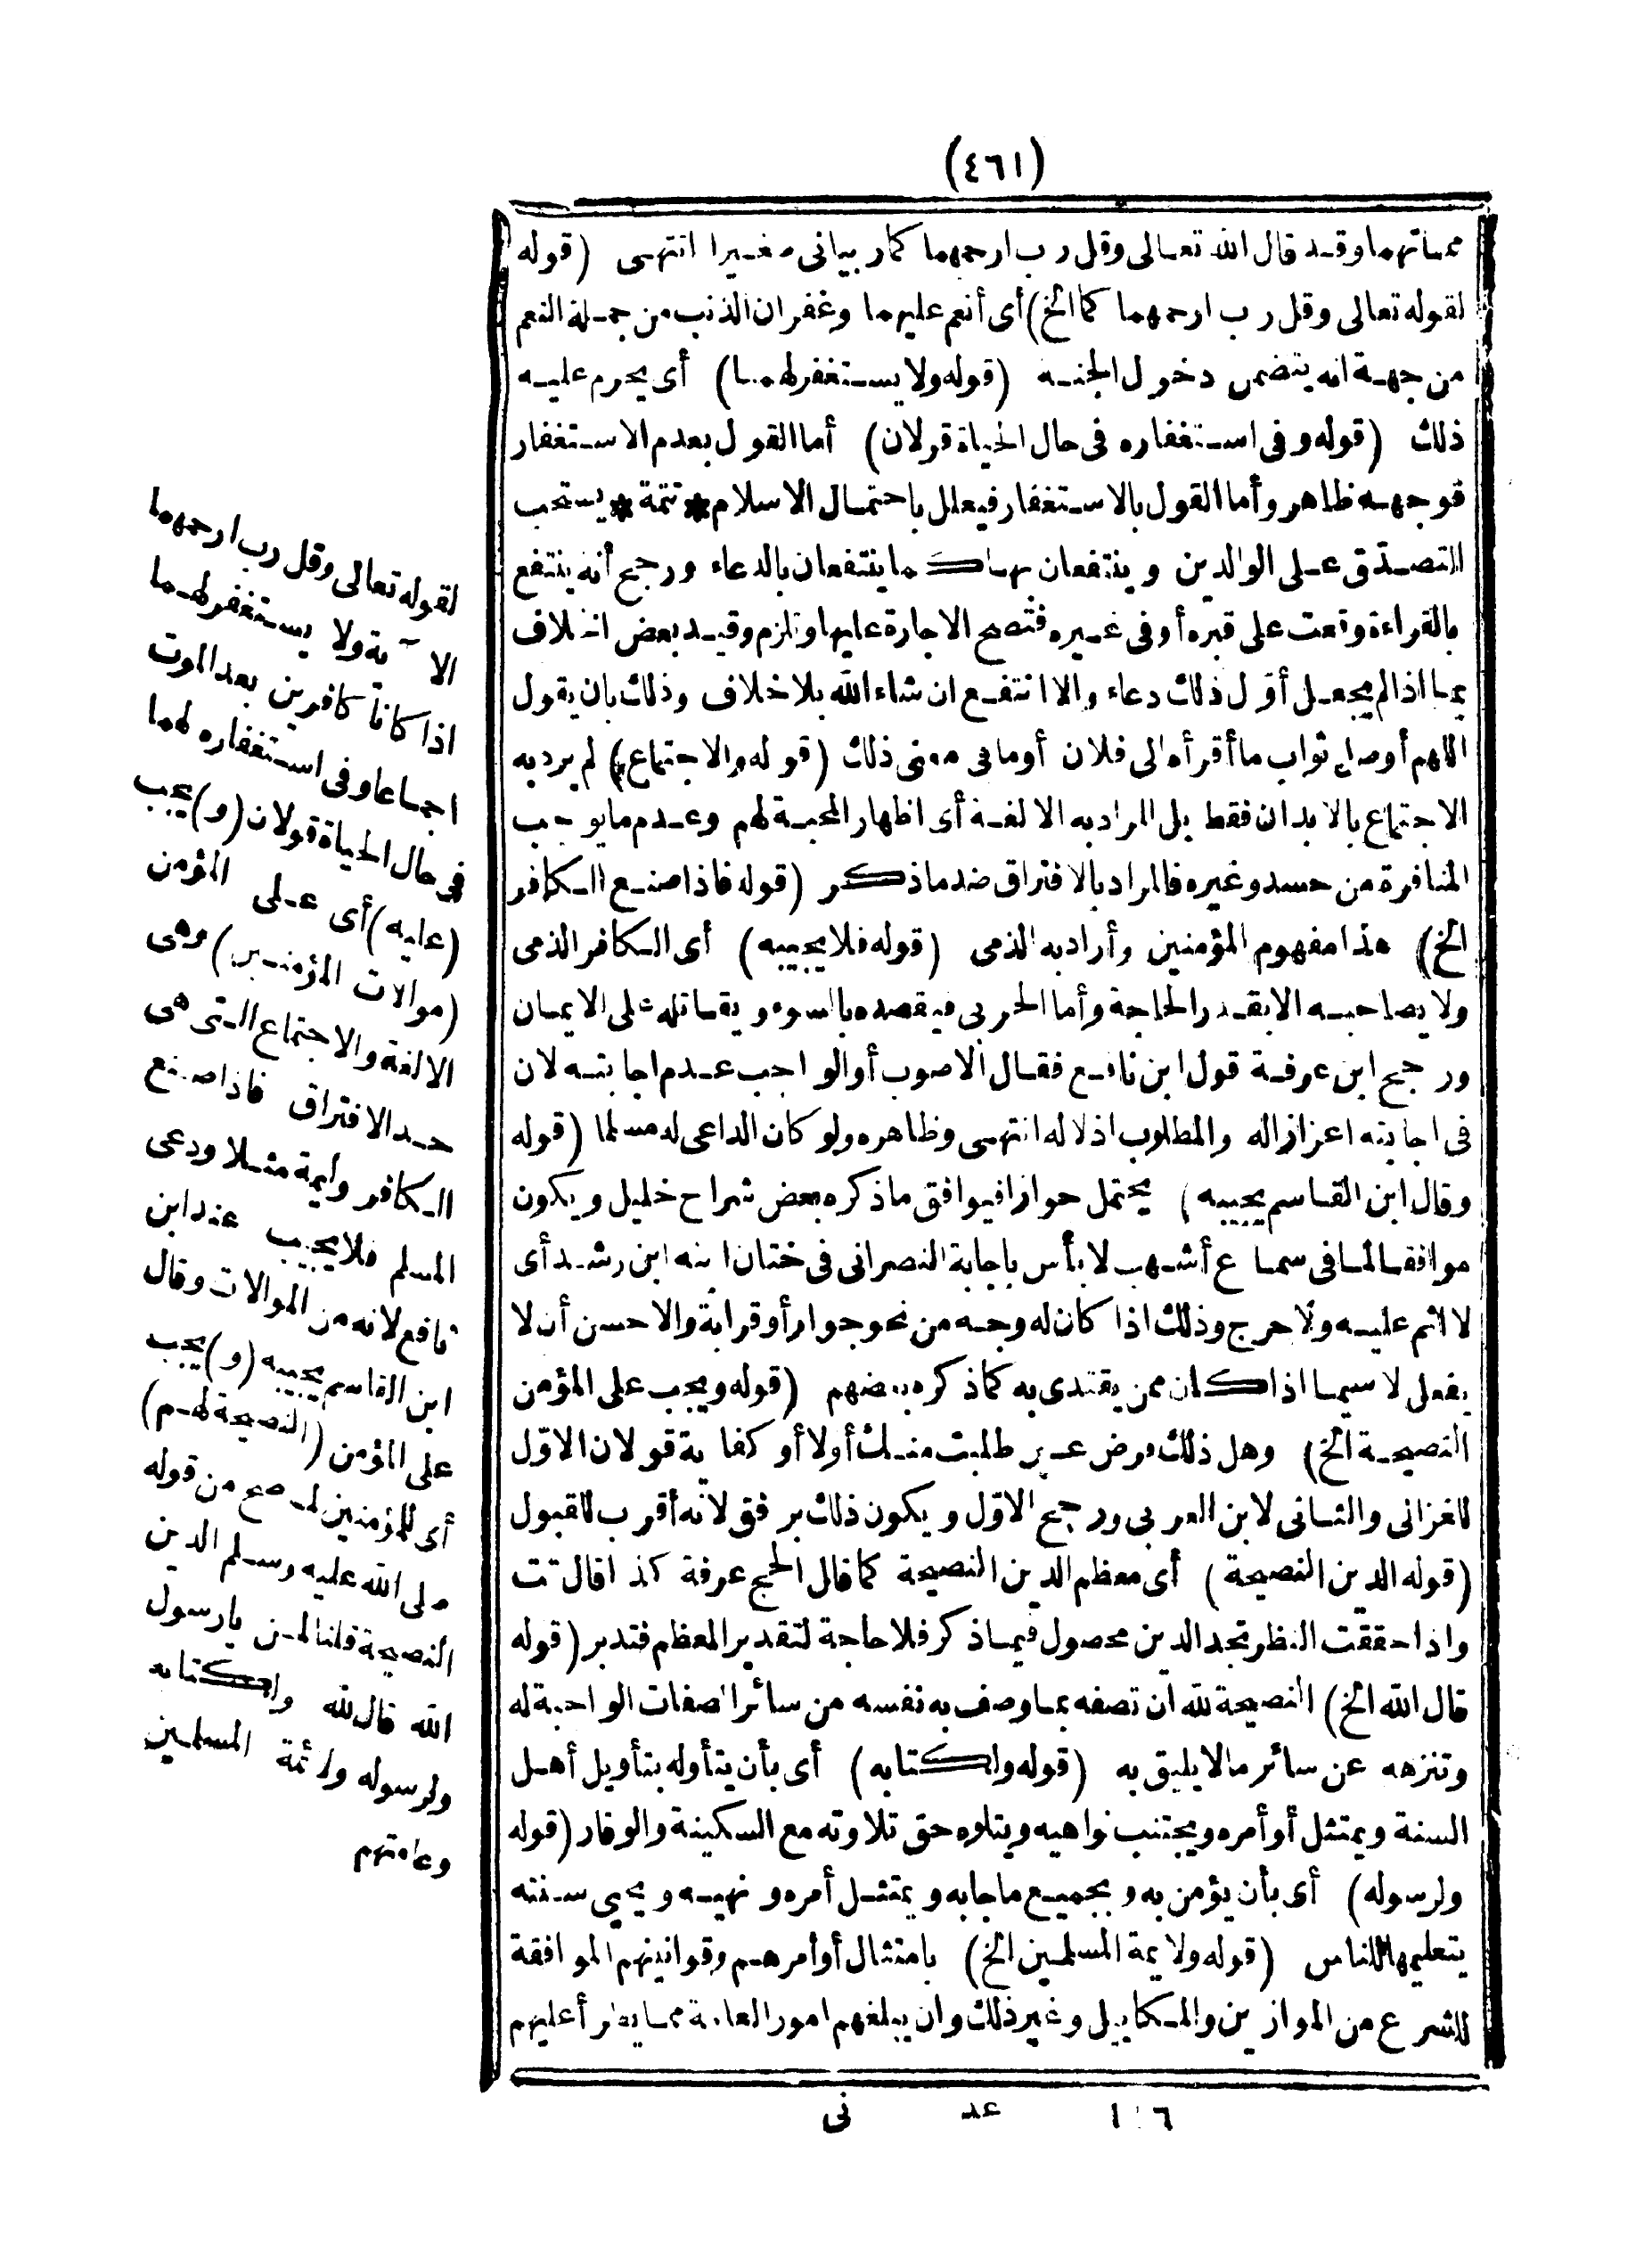 (٤٦١)
مماتهما وقد قال الله تعالى وقل رب ارحمهما كما ربياني صغيرا انتهى (قوله
لقوله تعالى وقل رب ارحمهما كما الخ) أى أنعم عليهما وغفران الذنب من جملة النعم
من جهة انه يتضمن دخول الجنة (قوله ولا يستغفر لهما) أى يحرم عليه
ذلك (قوله وفى استغفاره فى حال الحياة قولان) أما القول بعدم الاستغفار
فوجهه ظاهر وأما القول بالاستغفار فيعلل باحتمال الاسلام * تتمة * يستحب
التصدّق على الوالدين وينتفعان بها كما ينتفعان بالدعاء ورجح أنه ينتفع
بالقراءة وقعت على قبره أو فى غيره فتصح الاجارة عليها وتلزم وقيد بعض الخلاف
بما اذا لم يجعل أوّل ذلك دعاء والا انتفع ان شاء الله بلا خلاف وذلك بان يقول
اللهم أوصل ثواب ما أقرأه الى فلان أو ما فى معنى ذلك (قوله والاجتماع) لم يرد به
الاجتماع بالابدان فقط بل المراد به الالفة أى اظهار المحبة لهم وعدم ما يوجب
المنافرة من حسد وغيره فالمراد بالافتراق ضد ما ذكر (قوله فاذا صنع الكافر
الخ) هذا مفهوم المؤمنين وأراد به الذمى (قوله فلا يجيبه) أى الكافر الذمى
ولا يصاحبه الا بقدر الحاجة وأما الحربى فيقصده بالسوء ويقاتله على الايمان
ورجح ابن عرفة قول ابن نافع فقال الاصوب أو الواجب عدم اجابته لان
فى اجابته اعزازا له والمطلوب اذلاله انتهى وظاهره ولو كان الداعى له مسلما (قوله
وقال ابن القاسم يجيبه) يحتمل جوازا فيوافق ما ذكره بعض شراح خليل ويكون
موافقا لما فى سماع أشهب لا بأس باجابة النصرانى فى ختان ابنه ابن رشد أى
لا اثم عليه ولا حرج وذلك اذا كان له وجه من نحو جوار أو قرابة والاحسن أن لا
يفعل لا سيما اذا كان ممن يقتدى به كما ذكره بعضهم (قوله ويجب على المؤمن
النصيحة الخ) وهل ذلك فرض عين طلبت منك أولا أو كفاية قولان الاوّل
للغزالى والثانى لابن العربى ورجح الاوّل ويكون ذلك برفق لانه أقرب للقبول
(قوله الدين النصيحة) أى معظم الدين النصيحة كما قال الحج عرفة كذا قال تت
واذا حققت النظر تجد الدين محصول فيما ذكر فلا حاجة لتقدير المعظم فتدبر (قوله
قال الله الخ) النصيحة لله ان تصفه بما وصف به نفسه من سائر الصفات الواجبة له
وتنزهه عن سائر ما لا يليق به (قوله ولكتابه) أى بأن يتأوله بتأويل أهل
السنة ويمتثل أوأمره ويجتنب نواهيه ويتلوه حق تلاوته مع السكينة والوقار (قوله
ولرسوله) أى بأن يؤمن به وبجميع ما جابه ويمتثل أمره ونهيه ويحيى سنته
بتعليمها للناس (قوله ولايمة المسلمين الخ) بامتثال أوأمرهم وقوانينهم الموافقة
للشرع من الموازين والمكاييل وغير ذلك وان يبلغهم امور العامة مما يطرأ عليهم
لقوله تعالى وقل رب ارحمهما
الآية ولا يستغفر لهما
اذا كانا كافرين بعد الموت
اجماعا وفى استغفاره لهما
فى حال الحياة قولان (و) يجب
(عليه) أى على المؤمن
(موالات المؤمنين) وهى
الالفة والاجتماع التى هى
ضد الافتراق فاذا صنع
الكافر وليمة مثلا ودعى
المسلم فلا يجيب عند ابن
نافع لانه من الموالات وقال
ابن القاسم يجيبه (و) يجب
على المؤمن (النصيحة لهم)
أى للمؤمنين لما صح من قوله
صلى الله عليه وسلم الدين
النصيحة قلنا لمن يا رسول
الله قال لله ولكتابه
ولرسوله ولائمة المسلمين
وعامتهم
١١٦ عد نى